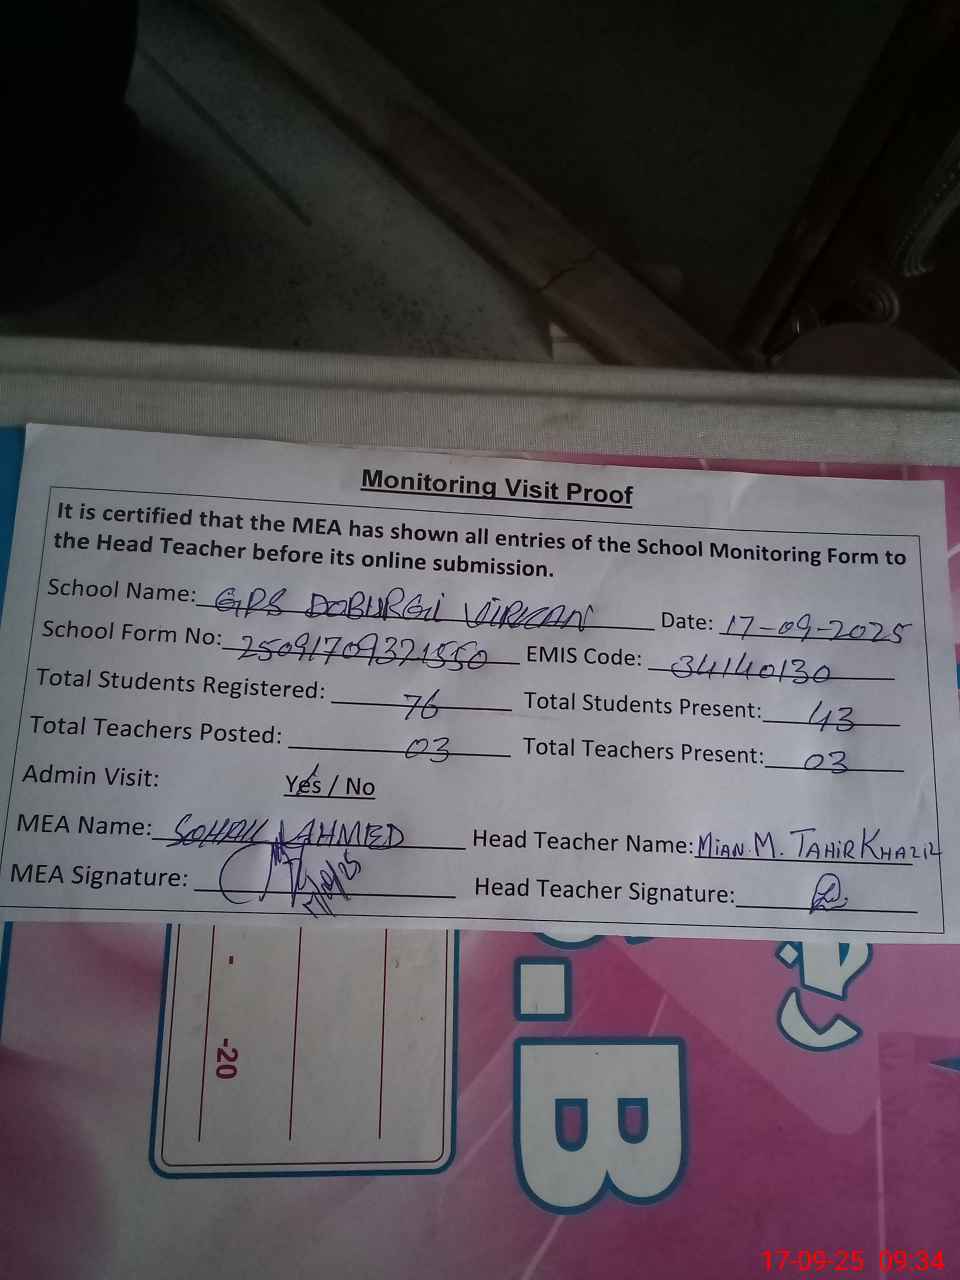 Monitoring Visit Proof
It is certified that the MEA has shown all entries of the School Monitoring Form to
the Head Teacher before its online submission.
School Name: GPS DOBURGII VIRKAN Date: 17-09-2025
School Form No: 25091709321550 EMIS Code: 34140130
Total Students Registered: 76 Total Students Present: 43
Total Teachers Posted: 03 Total Teachers Present: 03
Admin Visit: Yes / No
MEA Name: SOHAIL AHMED Head Teacher Name: MIAN. M. TAHIR
MEA Signature: Head Teacher Signature:
- -20
.B
17-09-25 09:34